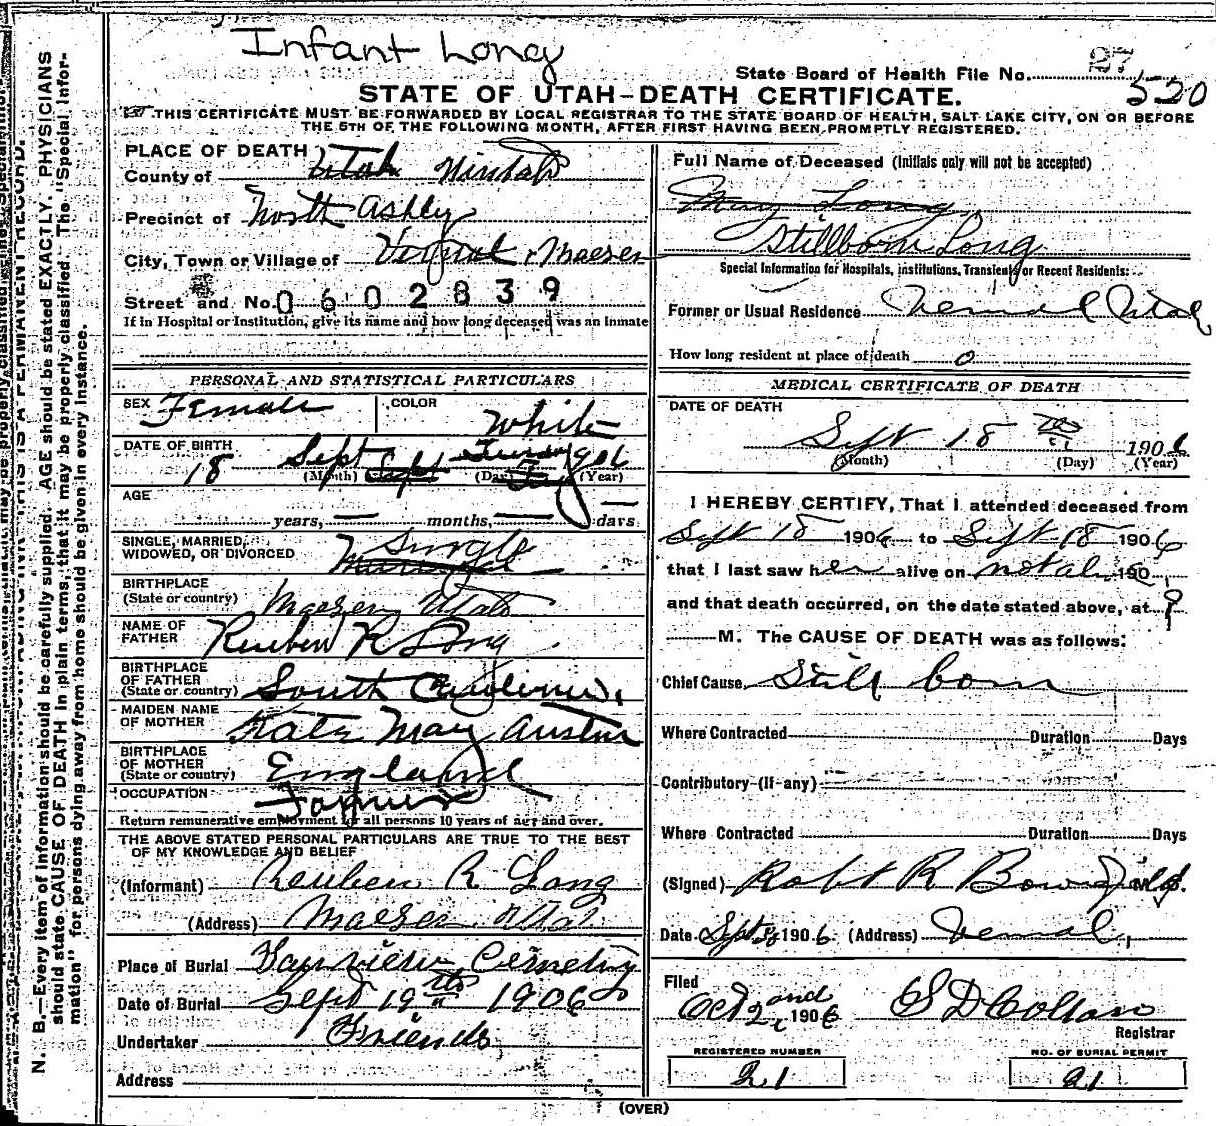 Infant Long
27
State Board of Health File No. 520
STATE OF UTAH-DEATH CERTIFICATE.
THIS CERTIFICATE MUST BE FORWARDED BY LOCAL REGISTRAR TO THE STATE BOARD OF HEALTH, SALT LAKE CITY, ON OR BEFORE
THE 5TH OF THE FOLLOWING MONTH, AFTER FIRST HAVING BEEN PROMPTLY REGISTERED.
PLACE OF DEATH
County of Utah
Precinct of North Ashley
City, Town or Village of Maeser
Street and No.
0602839
If in Hospital or Institution, give its name and how long deceased was an Inmate
Full Name of Deceased (Initials only will not be accepted)
May Long
Stillborn Long
Special Information for Hospitals, Institutions, Transients or Recent Residents:
Former or Usual Residence Vernal Utah
How long resident at place of death 0
PERSONAL AND STATISTICAL PARTICULARS
SEX Female COLOR White
DATE OF BIRTH 18 Sept 1906
(Month) (Day) (Year)
AGE
years, months, days
SINGLE, MARRIED,
WIDOWED, OR DIVORCED Single
BIRTHPLACE
(State or country) Maeser Utah
NAME OF
FATHER Reuben R Long
BIRTHPLACE
OF FATHER
(State or country) South Carolina
MAIDEN NAME
OF MOTHER Kate May Austin
BIRTHPLACE
OF MOTHER
(State or country) England
OCCUPATION
Return remunerative employment for all persons 10 years of age and over.
THE ABOVE STATED PERSONAL PARTICULARS ARE TRUE TO THE BEST
OF MY KNOWLEDGE AND BELIEF
(Informant) Reuben R Long
(Address) Maeser Utah
Place of Burial Cemetery
Date of Burial Sept 19th 1906
Undertaker Friends
Address
MEDICAL CERTIFICATE OF DEATH
DATE OF DEATH
Sept 18 th 1906
(Month) (Day) (Year)
I HEREBY CERTIFY, That I attended deceased from
Sept 18 1906 to Sept 18 1906
that I last saw her alive on not al. 190
and that death occurred, on the date stated above, at ?
M. The CAUSE OF DEATH was as follows:
Chief Cause Still born
Where Contracted Duration Days
Contributory (if any)
Where Contracted Duration Days
(Signed) Robt R M.D.
Date Sept 30 1906 (Address) Vernal,
Filed
Oct 2nd 1906 S D Colton
Registrar
REGISTERED NUMBER
21
NO. OF BURIAL PERMIT
21
(OVER)
N. B.—Every item of information should be carefully supplied. AGE should be stated EXACTLY. PHYSICIANS
should state CAUSE OF DEATH in plain terms, that it may be properly classified. The "Special Infor-
mation" for persons dying away from home should be given in every instance.